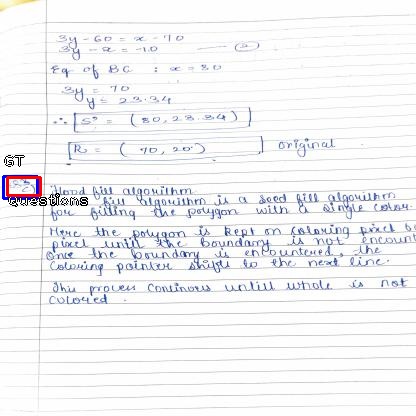 3y - 60 = x - 70
3y - x = -10 — (2)
Eq of BC : x = 80
3y = 70
y = 23.34
∴ [S' = (80, 23.34)]
[R = (70, 20)] original
GT
questions
Flood fill algorithm
fill algorithm is a seed fill algorithm
for filling the polygon with a single color.
Here the polygon is kept on coloring pixel b
pixel until the boundary is not encount
Once the boundary is encountered, the
coloring pointer shifts to the next line.
This process continous untill whole is not
colored.